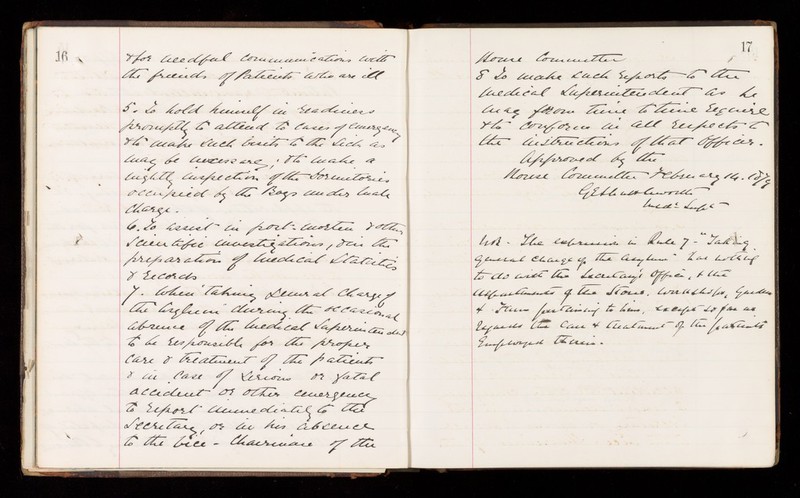 16
& for needful communications with
the friends of Patients who are ill
5. To hold himself in readiness
promptly to attend to cases of emergency
& to make such visits to the Sick as
may be necessary; & to make a
nightly inspection of the Dormitories
occupied by the Boys under male
charge.
6. To assist in post-mortem & other
Scientific investigations, & in the
preparation of Medical Statistics
& records
7. When "taking General Charge of
the Asylum" during the occasional
absence of the Medical Superintendent
to be responsible for the proper
care & treatment of the patients
& in case of serious or fatal
accident or other emergency
to report immediately to the
Secretary, or in his absence
to the Vice-Chairman of the
17
House Committee
8 To make such reports to the
Medical Superintendent as he
may from time to time require
& to conform in all respects to
the instructions of that Officer.
Approved by the
House Committee February 14. 1879
G E Shuttleworth
Medl Supt
N.B. - The expression in Rule 7 - "Taking
general charge of the Asylum" has nothing
to do with the Secretary's Office, & the
departments of the Stores, Workshops, Garden
& Farm pertaining to him, except so far as
regards the care & treatment of the patients
employed therein.